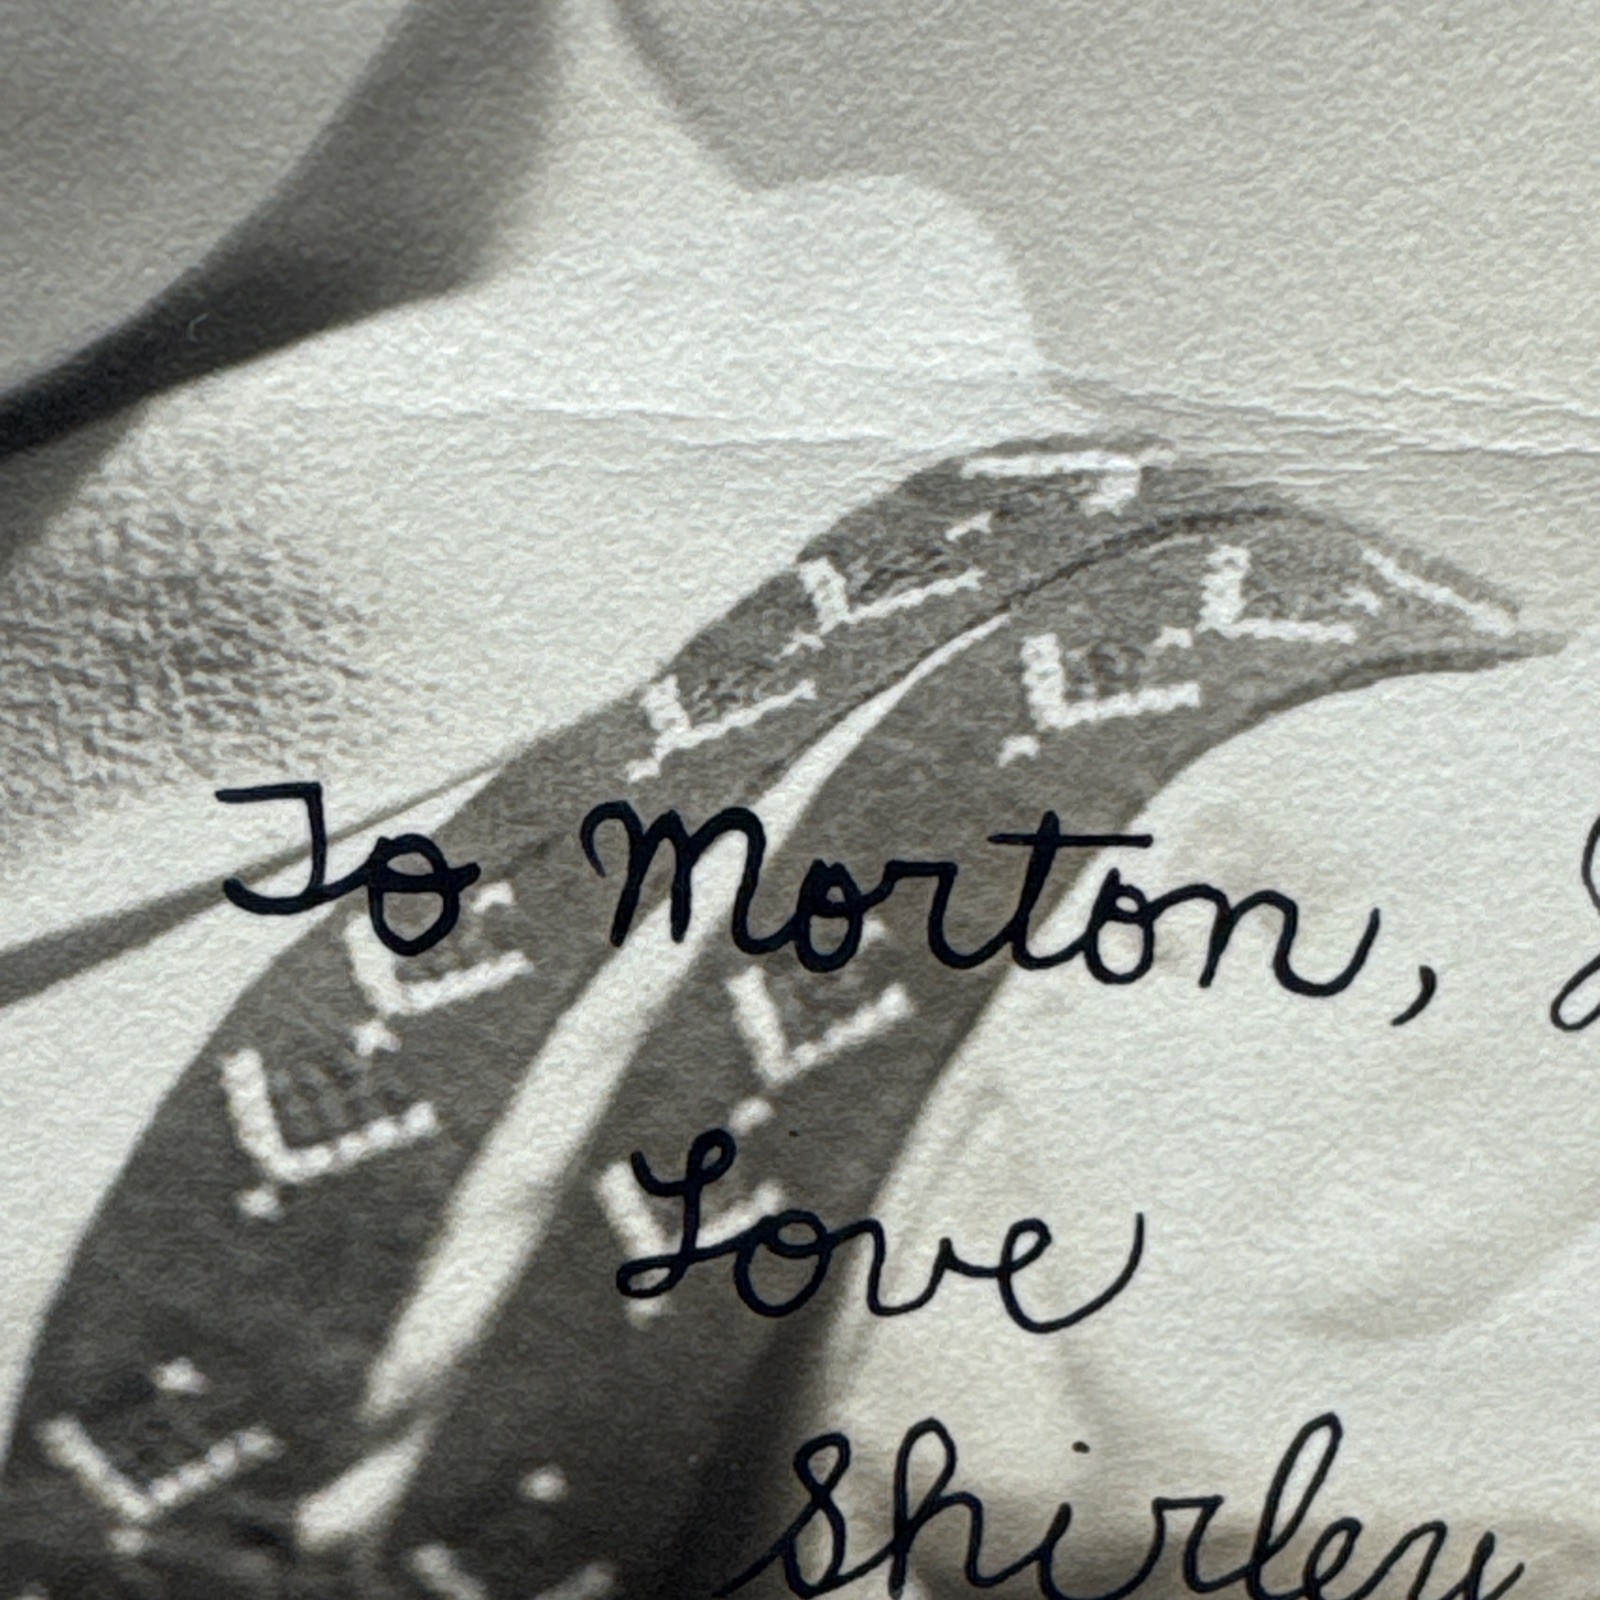 To Morton,
Love
Shirley